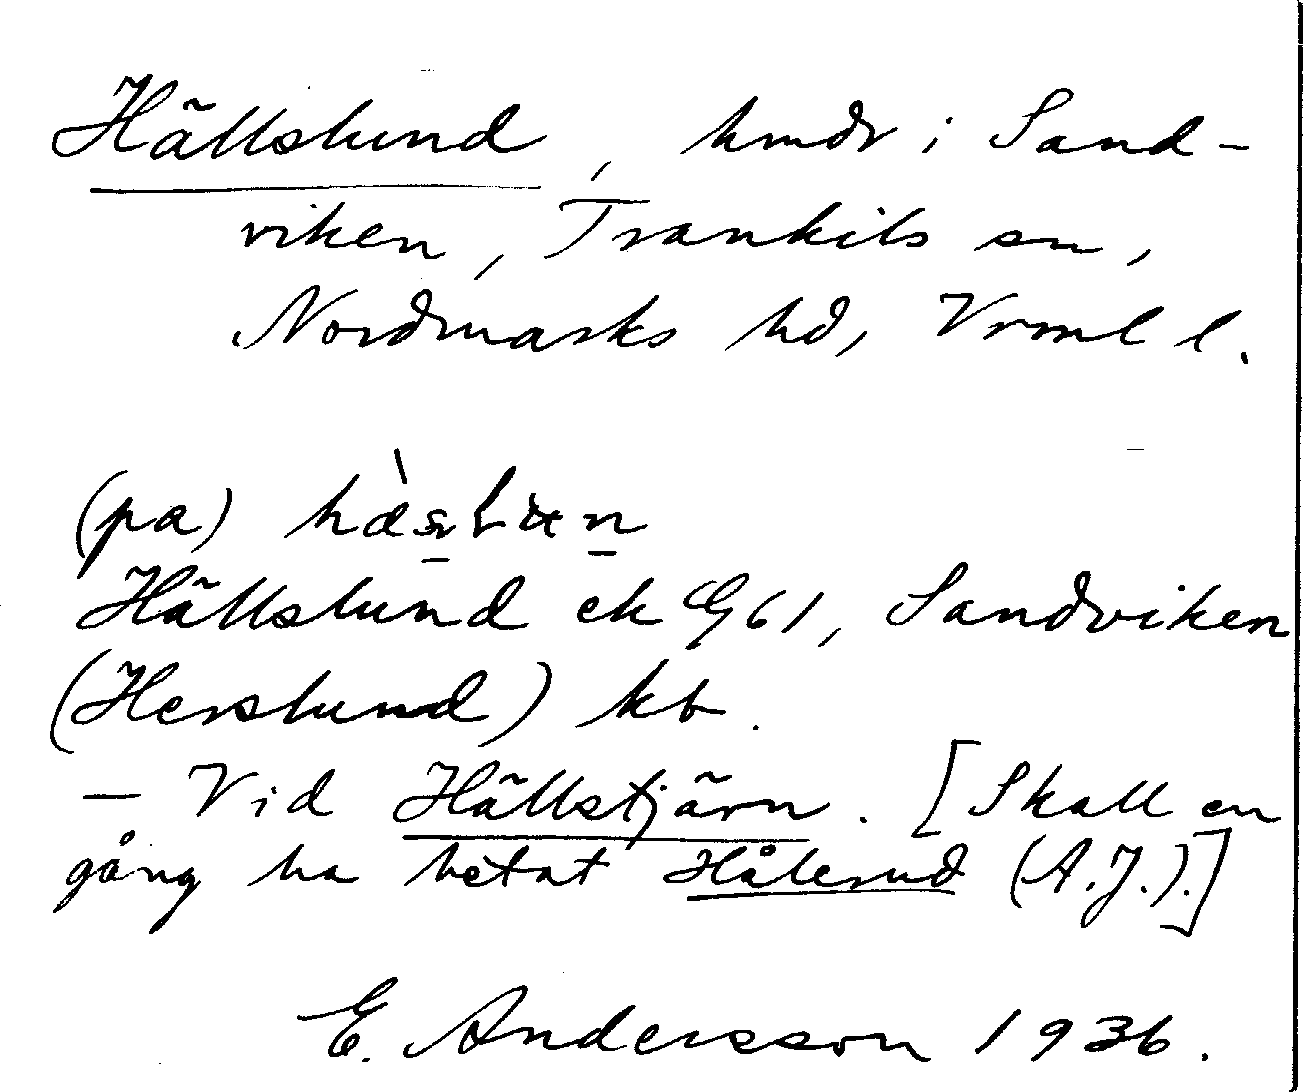 Hällslund, hmdr i Sand-
viken, Trankils sn,
Nordmarks hd, Vrml l.
(pa)
Hällslund ek G61, Sandviken
(Herslund) kb.
— Vid Hällstjärn. [Skall en
gång ha hetat Hålerud (A.J.).]
E. Andersson 1936.